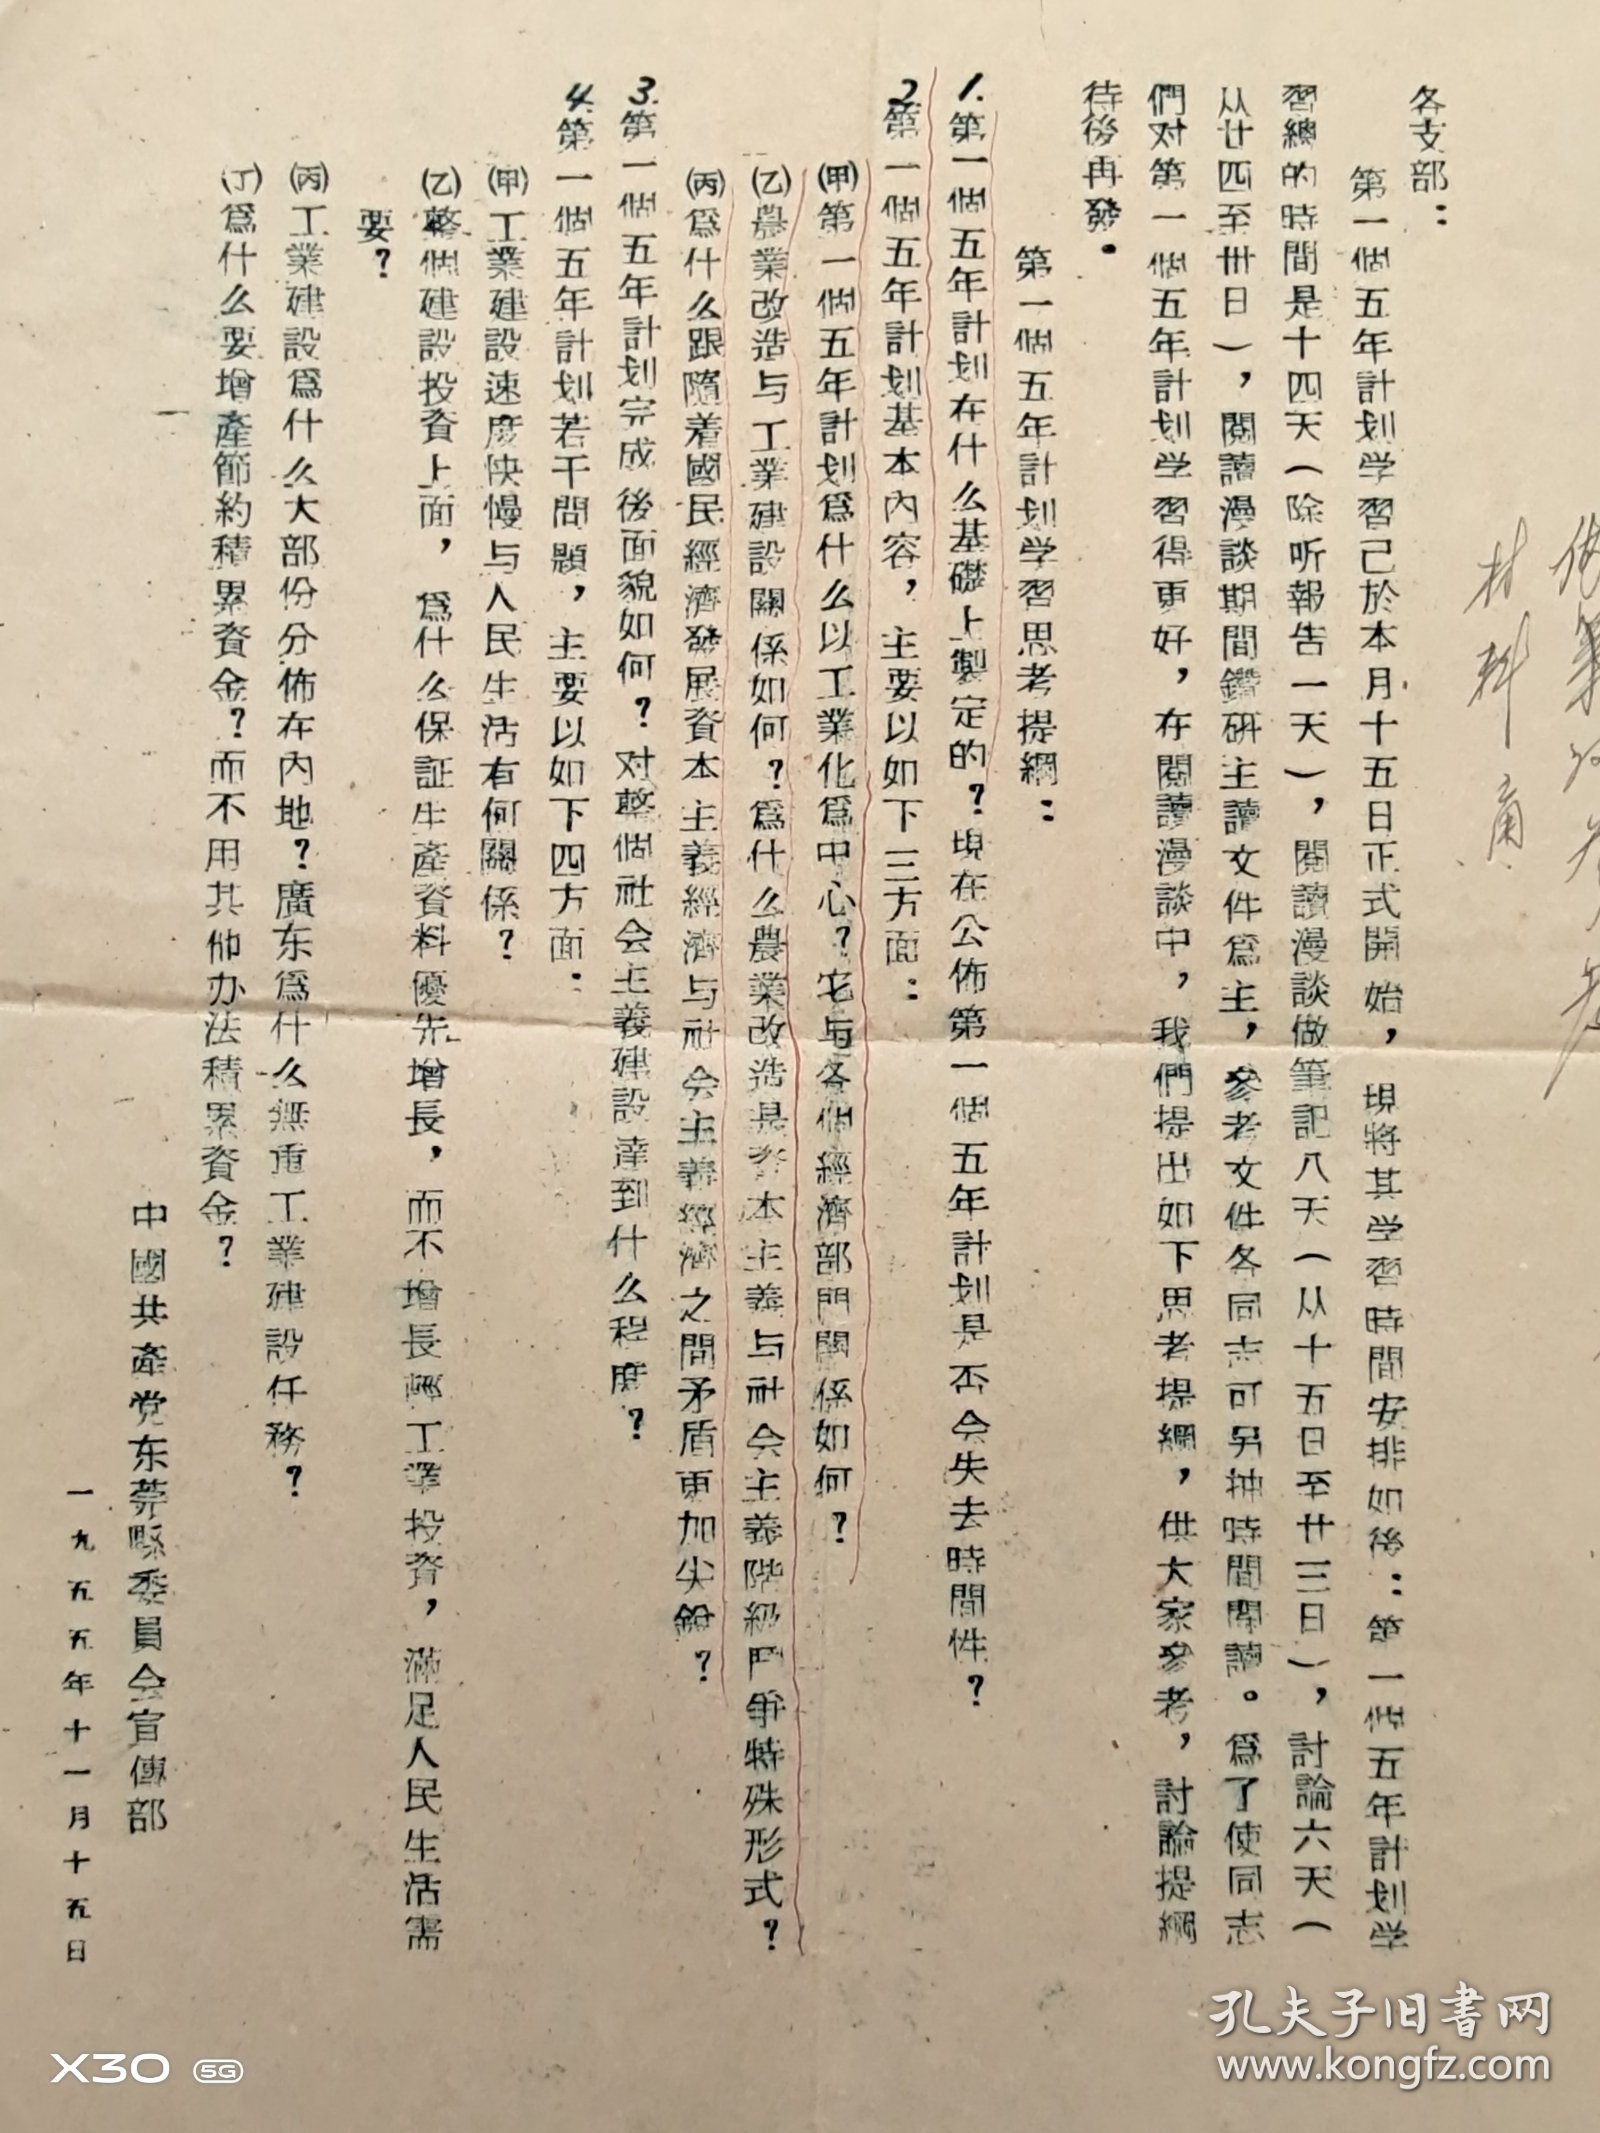 各支部：
第一個五年計划学習已於本月十五日正式開始，現將其学習時間安排如後：第一個五年計划学
習總的時間是十四天（除听報告一天），閱讀漫談做筆記八天（从十五日至廿三日），討論六天（
从廿四至卅日），閱讀漫談期間鑽研主讀文件爲主，參考文件各同志可另抽時間閱讀。爲了使同志
們对第一個五年計划学習得更好，在閱讀漫談中，我們提出如下思考提綱，供大家參考，討論提綱
待後再發。
第一個五年計划学習思考提綱：
1.第一個五年計划在什么基礎上製定的？現在公佈第一個五年計划是否会失去時間性？
2.第一個五年計划基本內容，主要以如下三方面：
㈙第一個五年計划爲什么以工業化爲中心？它与各個經濟部門關係如何？
㈚農業改造与工業建設關係如何？爲什么農業改造是資本主義与社会主義階級鬥爭特殊形式？
㈛爲什么跟隨着國民經濟發展資本主義經濟与社会主義經濟之間矛盾更加尖銳？
3.第一個五年計划完成後面貌如何？对整個社会主義建設達到什么程度？
4.第一個五年計划若干問題，主要以如下四方面：
(甲)工業建設速度快慢与人民生活有何關係？
(乙)整個建設投資上面，爲什么保証生產資料優先增長，而不增長輕工業投資，滿足人民生活需
要？
(丙)工業建設爲什么大部份分佈在內地？廣东爲什么無重工業建設任務？
(丁)爲什么要增產節約積累資金？而不用其他办法積累資金？
中國共產党东莞縣委員会宣傳部
一九五五年十一月十五日
材料
孔夫子旧书网
www.kongfz.com
X30 5G